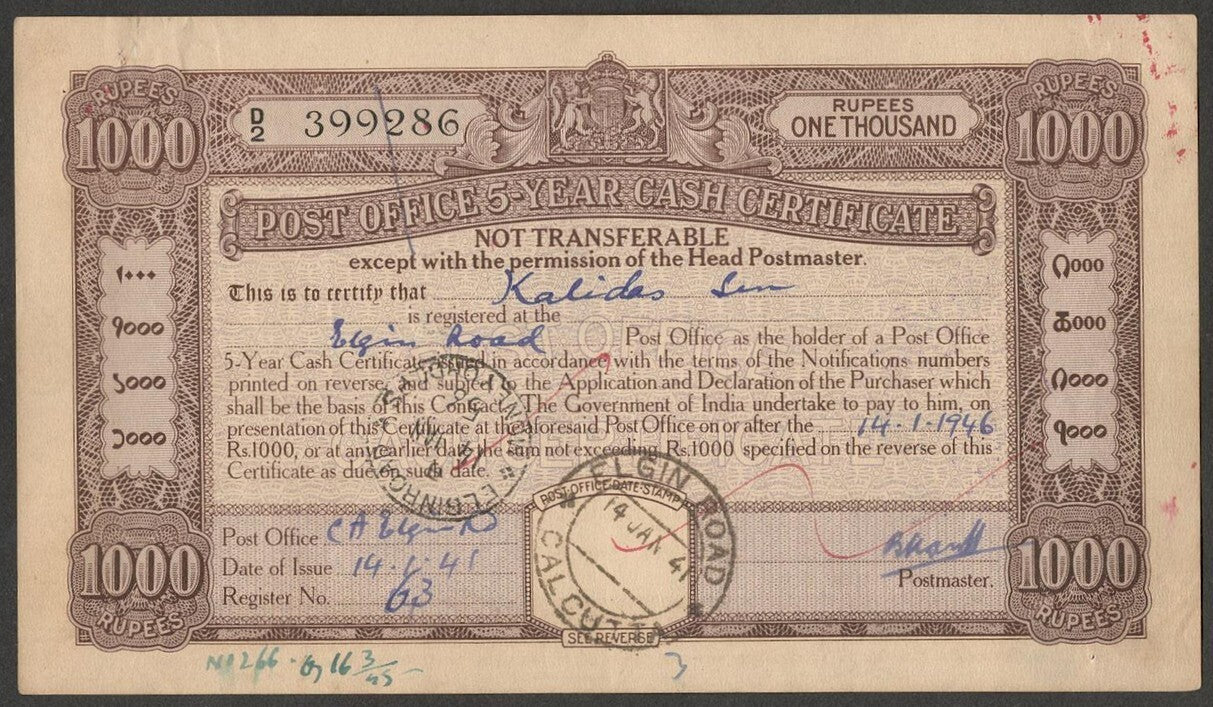 RUPEES 1000
D/2 399286
RUPEES ONE THOUSAND
RUPEES 1000
POST OFFICE 5-YEAR CASH CERTIFICATE
NOT TRANSFERABLE
except with the permission of the Head Postmaster.
This is to certify that Kalidas Sen
is registered at the
Elgin Road Post Office as the holder of a Post Office
5-Year Cash Certificate issued in accordance with the terms of the Notifications numbers
printed on reverse, and subject to the Application and Declaration of the Purchaser which
shall be the basis of this Contract. The Government of India undertake to pay to him, on
presentation of this Certificate at the aforesaid Post Office on or after the 14.1.1946
Rs.1000, or at any earlier date the sum not exceeding Rs.1000 specified on the reverse of this
Certificate as due on such date.
१०००
১০০০
Post Office C A Elgin Rd
Date of Issue 14.1.41
Register No. 63
POST OFFICE DATE STAMP
ELGIN ROAD
14 JAN 41
CALCUTTA
SEE REVERSE
Postmaster.
1000 RUPEES
1000 RUPEES